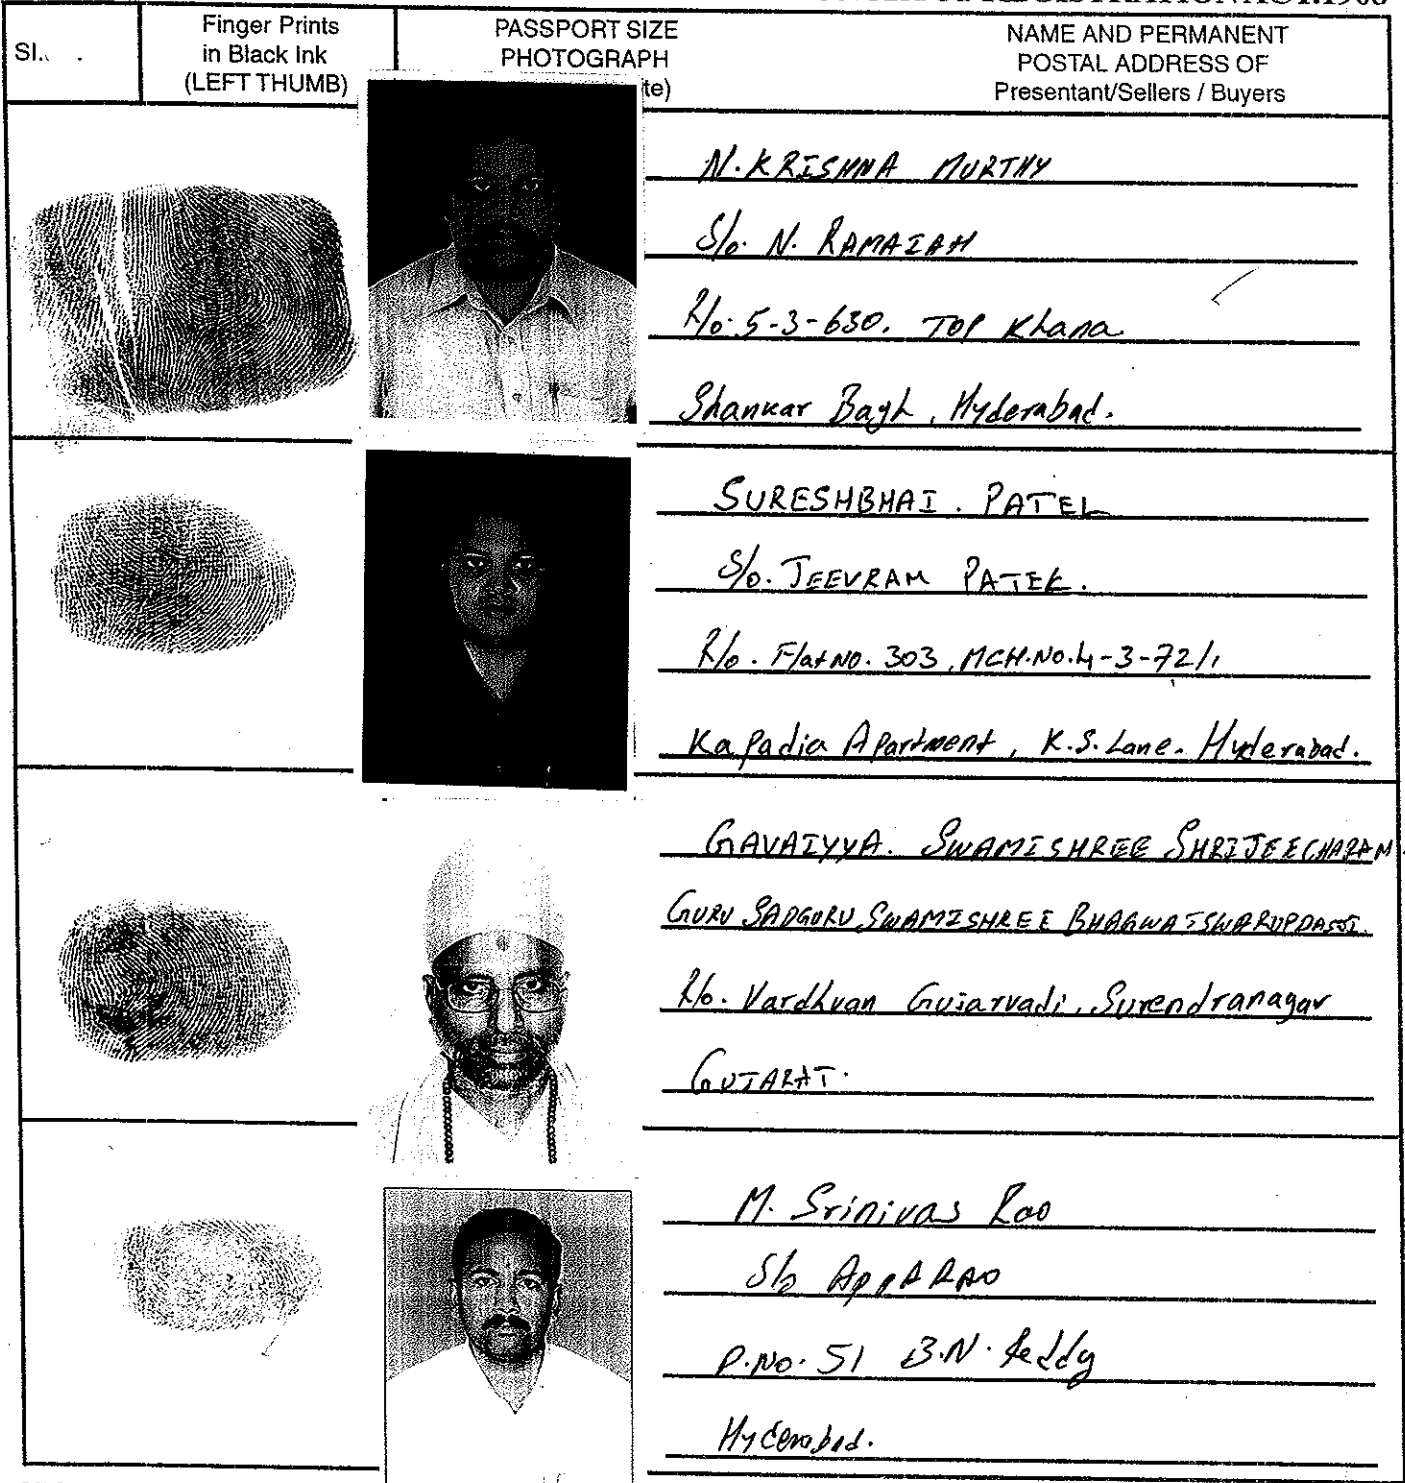 REGISTRATION ACT.1908
Sl..
Finger Prints
in Black Ink
(LEFT THUMB)
PASSPORT SIZE
PHOTOGRAPH
te)
NAME AND PERMANENT
POSTAL ADDRESS OF
Presentant/Sellers / Buyers
N. KRISHNA MURTHY
S/o. N. RAMAIAH
R/o. 5-3-630. TOP Khana
Shankar Bagh, Hyderabad.
SURESHBHAI. PATEL
S/o. JEEVRAM PATEL.
R/o. Flat NO. 303, MCH.NO.4-3-72/1
Kapadia Apartment, K.S. Lane. Hyderabad.
GAVAIYYA. SWAMISHREE SHRIJEECHARAN
GURU SADGURU SWAMISHREE BHAGWATSWARUPDASJI.
R/o. Vardhvan Gujarvadi, Surendranagar
GUJARAT.
M. Srinivas Rao
S/o AppARAO
P.No. 51 B.N. Reddy
Hyderabad.